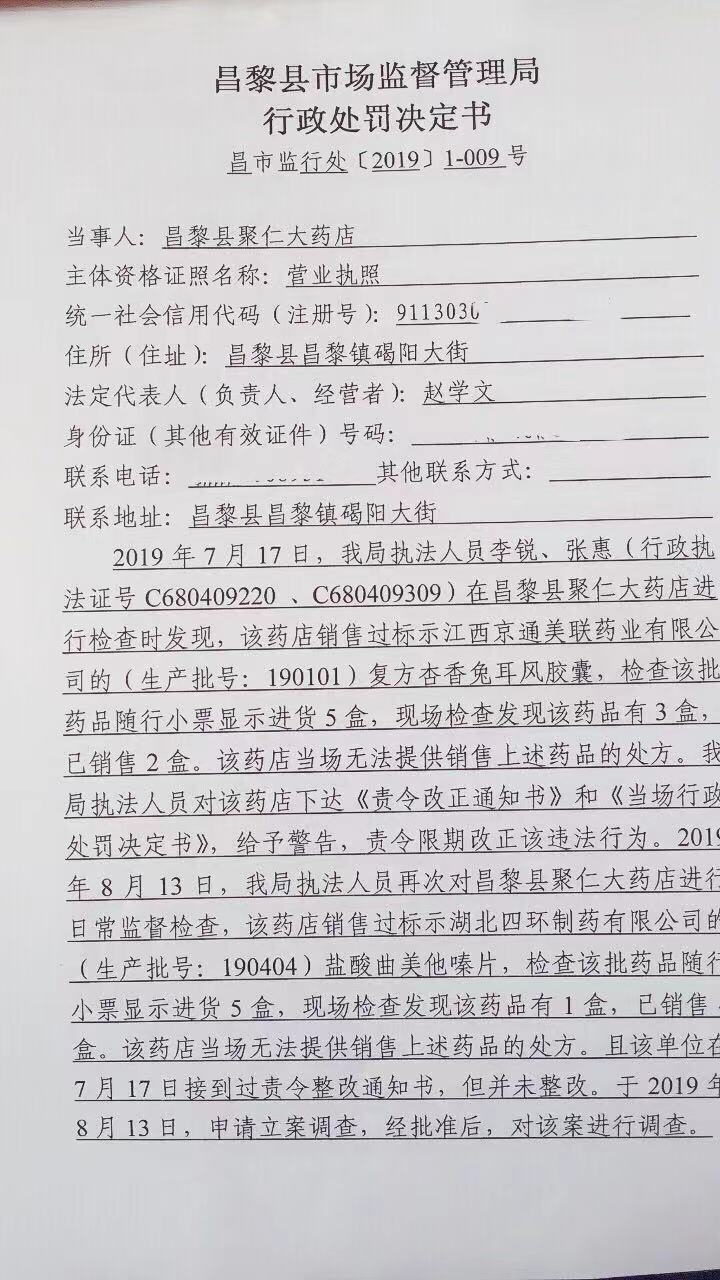 昌黎县市场监督管理局
行政处罚决定书
昌市监行处〔2019〕1-009号
当事人：昌黎县聚仁大药店
主体资格证照名称：营业执照
统一社会信用代码（注册号）：9113030
住所（住址）：昌黎县昌黎镇碣阳大街
法定代表人（负责人、经营者）：赵学文
身份证（其他有效证件）号码：
联系电话： 其他联系方式：
联系地址：昌黎县昌黎镇碣阳大街
2019年7月17日，我局执法人员李锐、张惠（行政执
法证号C680409220、C680409309）在昌黎县聚仁大药店进
行检查时发现，该药店销售过标示江西京通美联药业有限公
司的（生产批号：190101）复方杏香兔耳风胶囊，检查该批
药品随行小票显示进货5盒，现场检查发现该药品有3盒，
已销售2盒。该药店当场无法提供销售上述药品的处方。我
局执法人员对该药店下达《责令改正通知书》和《当场行政
处罚决定书》，给予警告，责令限期改正该违法行为。2019
年8月13日，我局执法人员再次对昌黎县聚仁大药店进行
日常监督检查，该药店销售过标示湖北四环制药有限公司的
（生产批号：190404）盐酸曲美他嗪片，检查该批药品随行
小票显示进货5盒，现场检查发现该药品有1盒，已销售
盒。该药店当场无法提供销售上述药品的处方。且该单位在
7月17日接到过责令整改通知书，但并未整改。于2019年
8月13日，申请立案调查，经批准后，对该案进行调查。